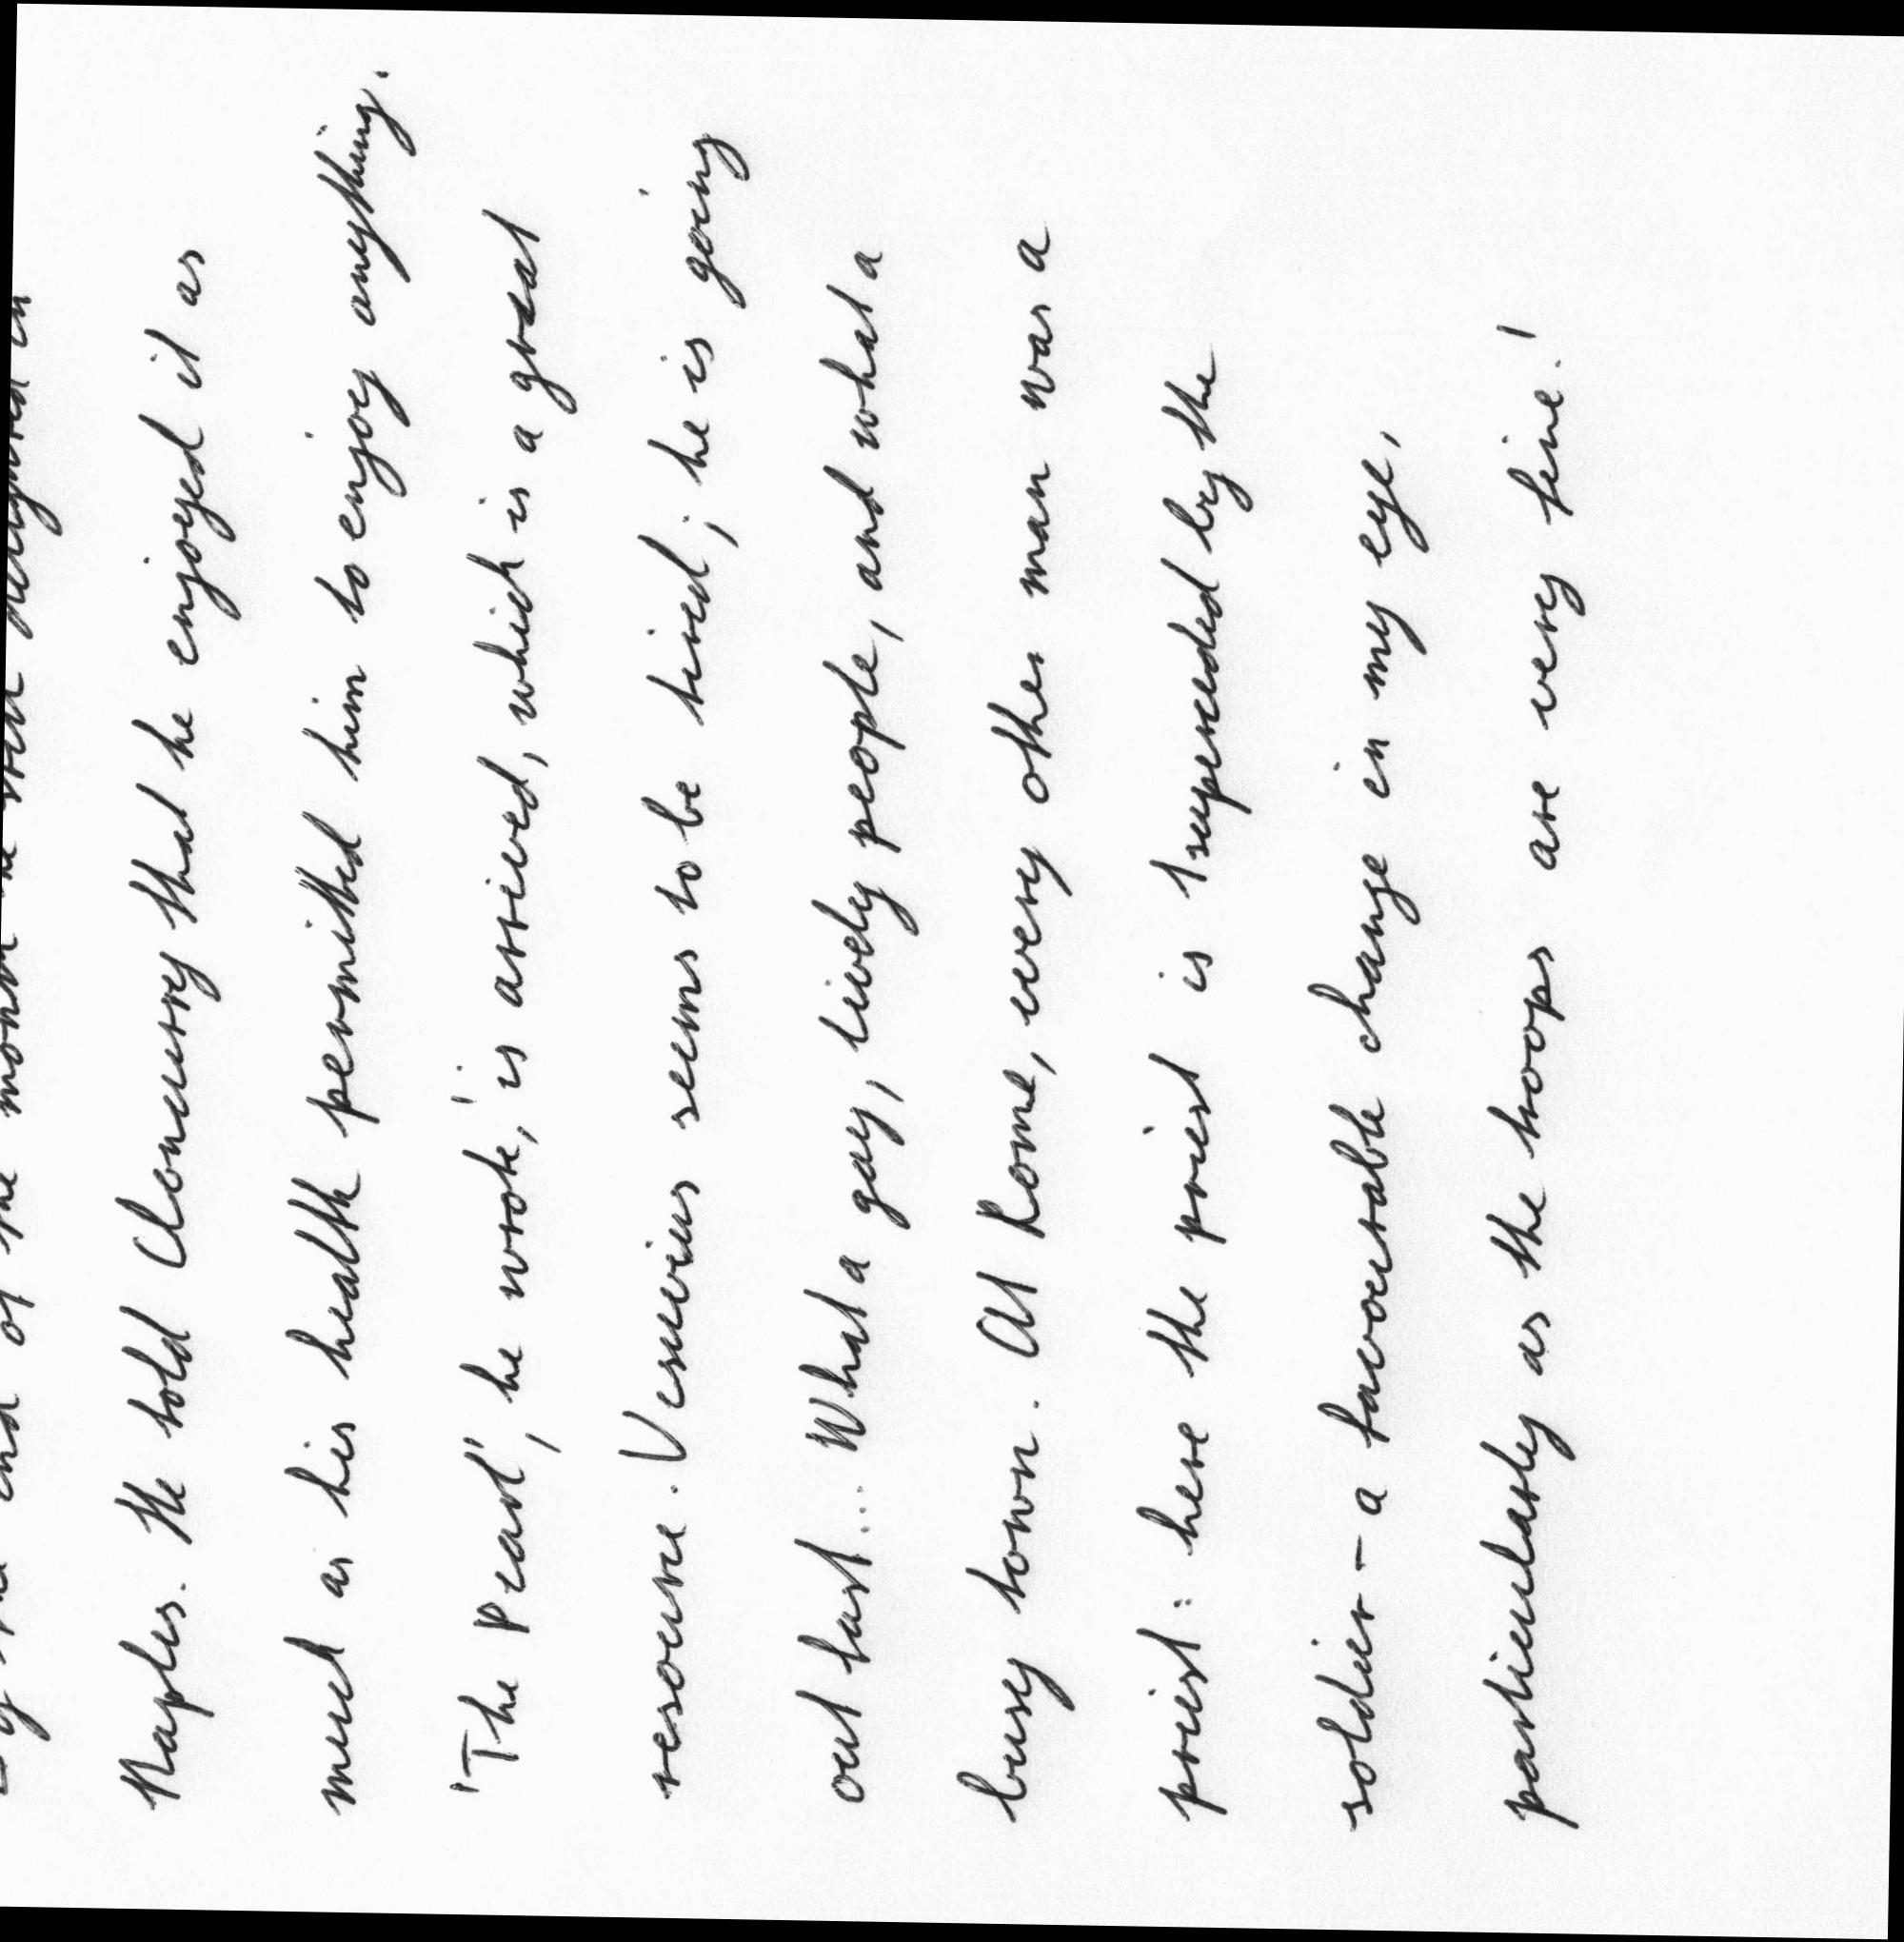 end of the month he still
Naples. He told Cloncurry that he enjoyed it as
much as his health permitted him to enjoy anything.
'The Pearl', he wrote, 'is arrived, which is a great
resource. Vesuvius seems to be tired; he is going
out fast... What a gay, lively people, and what a
busy town. At Rome, every other man was a
priest: here the priest is superseded by the
soldier - a favourable change in my eye,
particularly as the troops are very fine!